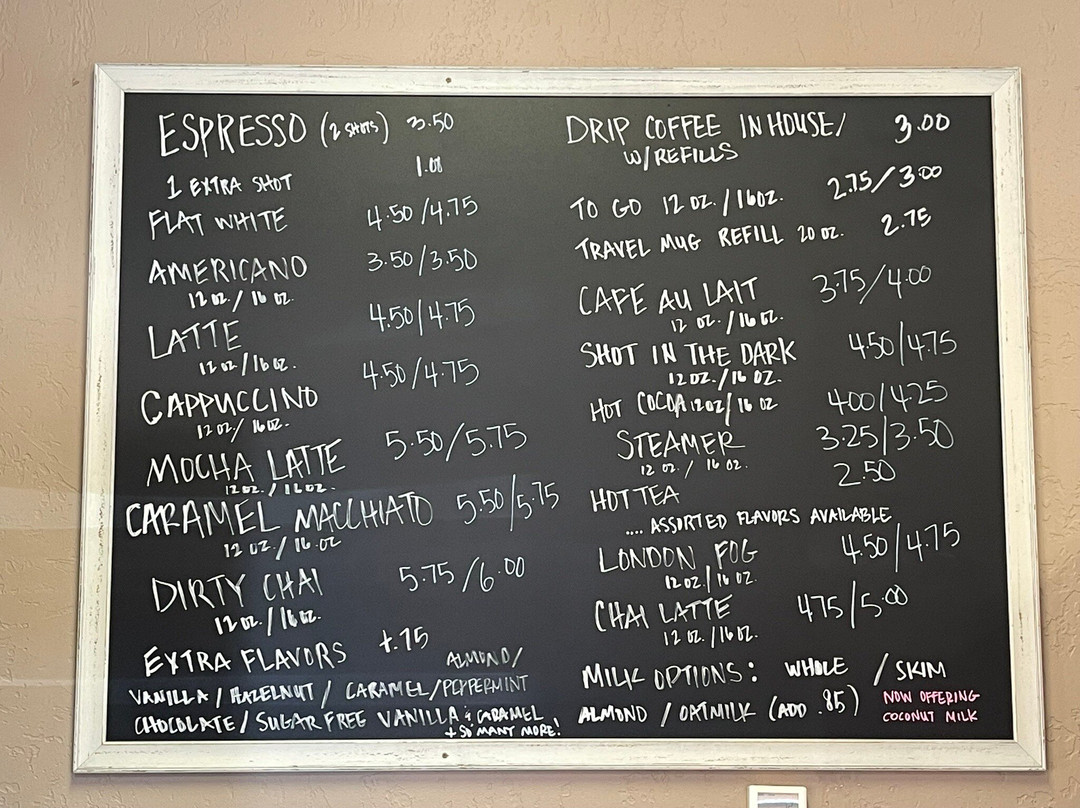 ESPRESSO (2 SHOTS) 3.50
1 EXTRA SHOT 1.00
FLAT WHITE 4.50/4.75
AMERICANO 3.50/3.50
12 OZ./16 OZ.
LATTE 4.50/4.75
12 OZ/16 OZ.
CAPPUCCINO 4.50/4.75
12 OZ/16OZ.
MOCHA LATTE 5.50/5.75
12 OZ./16OZ.
CARAMEL MACCHIATO 5.50/5.75
12 OZ/16 OZ
DIRTY CHAI 5.75/6.00
12 OZ./16 OZ.
EXTRA FLAVORS +.75
ALMOND/
VANILLA / HAZELNUT / CARAMEL/PEPPERMINT
CHOCOLATE / SUGAR FREE VANILLA & CARAMEL
+ SO MANY MORE!
DRIP COFFEE IN HOUSE/ 3.00
W/REFILLS
TO GO 12 OZ./16OZ. 2.75/3.00
TRAVEL MUG REFILL 20 OZ. 2.75
CAFE AU LAIT 3.75/4.00
12 OZ./16 OZ.
SHOT IN THE DARK 4.50/4.75
12 OZ./16 OZ.
HOT COCOA 12 OZ/16 OZ 400/4.25
STEAMER 3.25/3.50
12 OZ./16 OZ.
HOT TEA 2.50
.... ASSORTED FLAVORS AVAILABLE
LONDON FOG 4.50/4.75
12 OZ/16 OZ.
CHAI LATTE 475/5.00
12 OZ./16OZ.
MILK OPTIONS: WHOLE / SKIM
ALMOND / OATMILK (ADD .85)
NOW OFFERING
COCONUT MILK